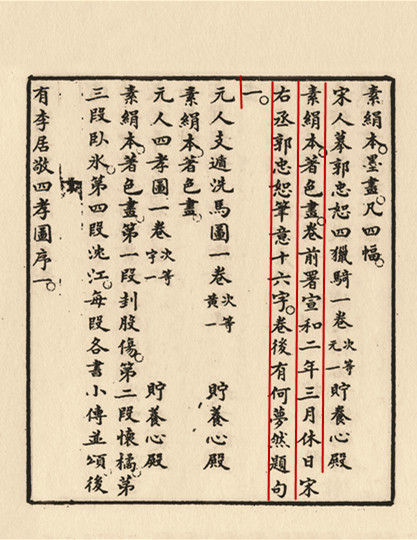 素絹本墨畫凡四幅
宋人摹郭忠恕四獵騎一卷 次等元一 貯養心殿
素絹本著色畫卷前署宣和二年三月休日宋
右丞郭忠恕筆意十六字卷後有何夢然題句
一
元人支遁洗馬圖一卷 次等黃一 貯養心殿
素絹本著色畫
元人四孝圖一卷 次等字一 貯養心殿
素絹本著色畫第一段刲股傷第二段懷橘第
三段臥氷第四段沈江每段各書小傳並頌後
有李居敬四孝圖序一